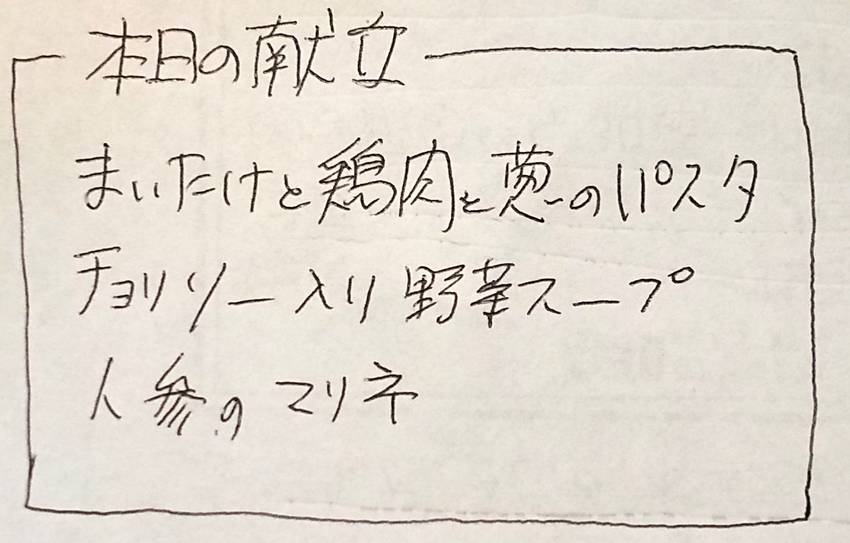 本日の献立
まいたけと鶏肉と葱のパスタ
チョリソー入り野菜スープ
人参のマリネ